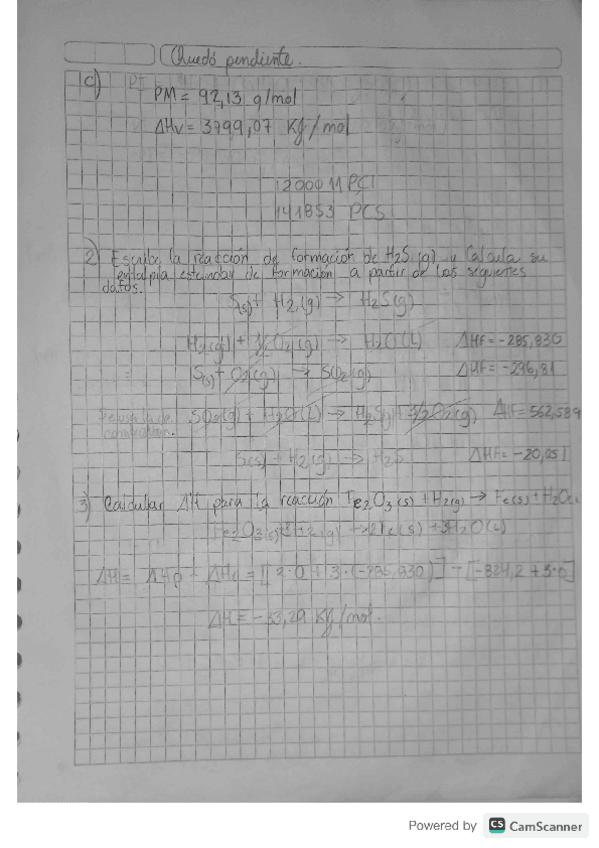 Quedó pendiente.
1c)
PM = 92,13 g/mol
ΔHv = 3799,07 KJ/mol
120011 PCI
141853 PCS
2) Escribe la reacción de formación de H2S (g) y Calcula su
entalpía estandar de formación a partir de los siguientes
datos.
S(s) + H2(g) → H2S(g)
H2(g) + 1/2 O2(g) → H2O(L) ΔHF = -285,830
S(s) + O2(g) → SO2(g) ΔHF = -296,81
SO2(g) + H2O(L) → H2S(g) + 3/2 O2(g) ΔHF = 562,589
S(s) + H2(g) → H2S ΔHF = -20,051
3) Calcular ΔH para la reacción Fe2O3(s) + H2(g) → Fe(s) + H2O(
Fe2O3(s) + 2(g) → 2Fe(s) + 3H2O(L)
ΔH = ΔHp - ΔHr = [2·0 + 3·(-285,830)] - [-824,2 + 3·0]
ΔH = -33,29 KJ/mol.
Powered by CS CamScanner